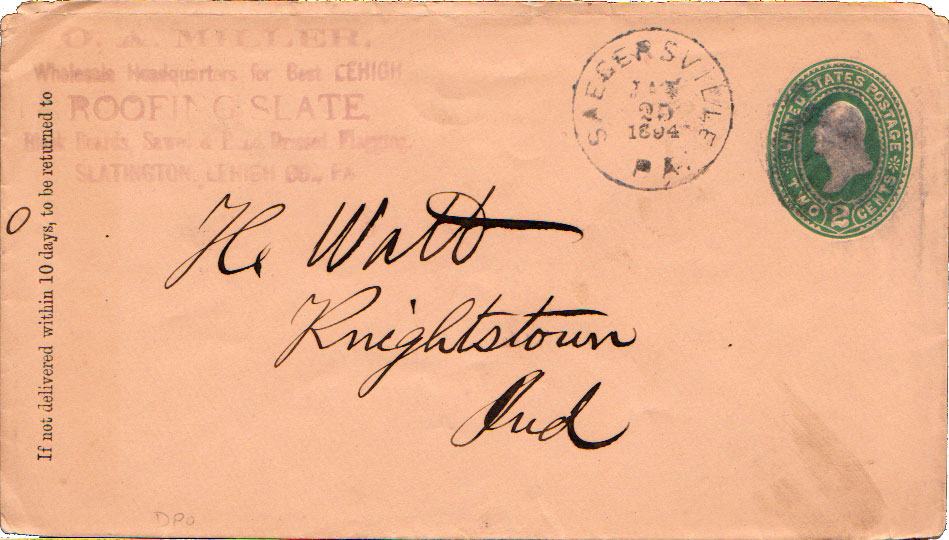 O. A. MILLER.
Wholesale Headquarters for Best LEHIGH
ROOFING SLATE
Boards, Sawed & Dressed
SLATINGTON, LEHIGH CO., PA
If not delivered within 10 days, to be returned to
SAEGERSVILLE
25
1894
PA.
UNITED STATES POSTAGE
TWO 2 CENTS
H. Watt
Knightstown
Ind
DPO